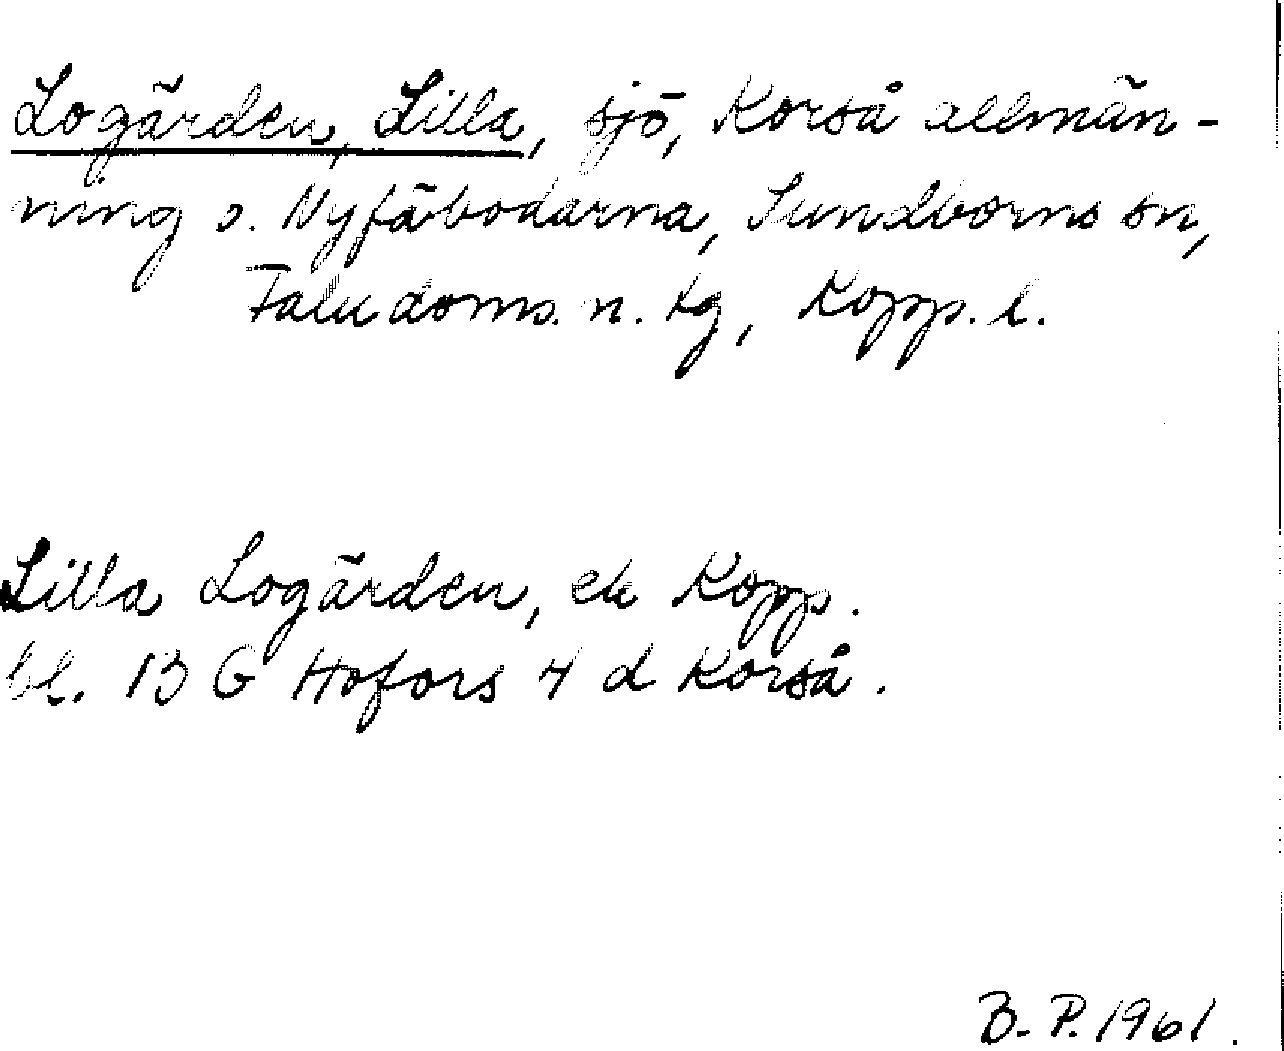 Logärden, Lilla, sjö, Korså allmän-
ning o. Nyfäbodarna, Sundborns sn,
Faludoms. n. tg, Kopp. l.
Lilla Logärden, ek Kopp.
bl. 13 G Hofors 4 d Korså.
B. P. 1961.